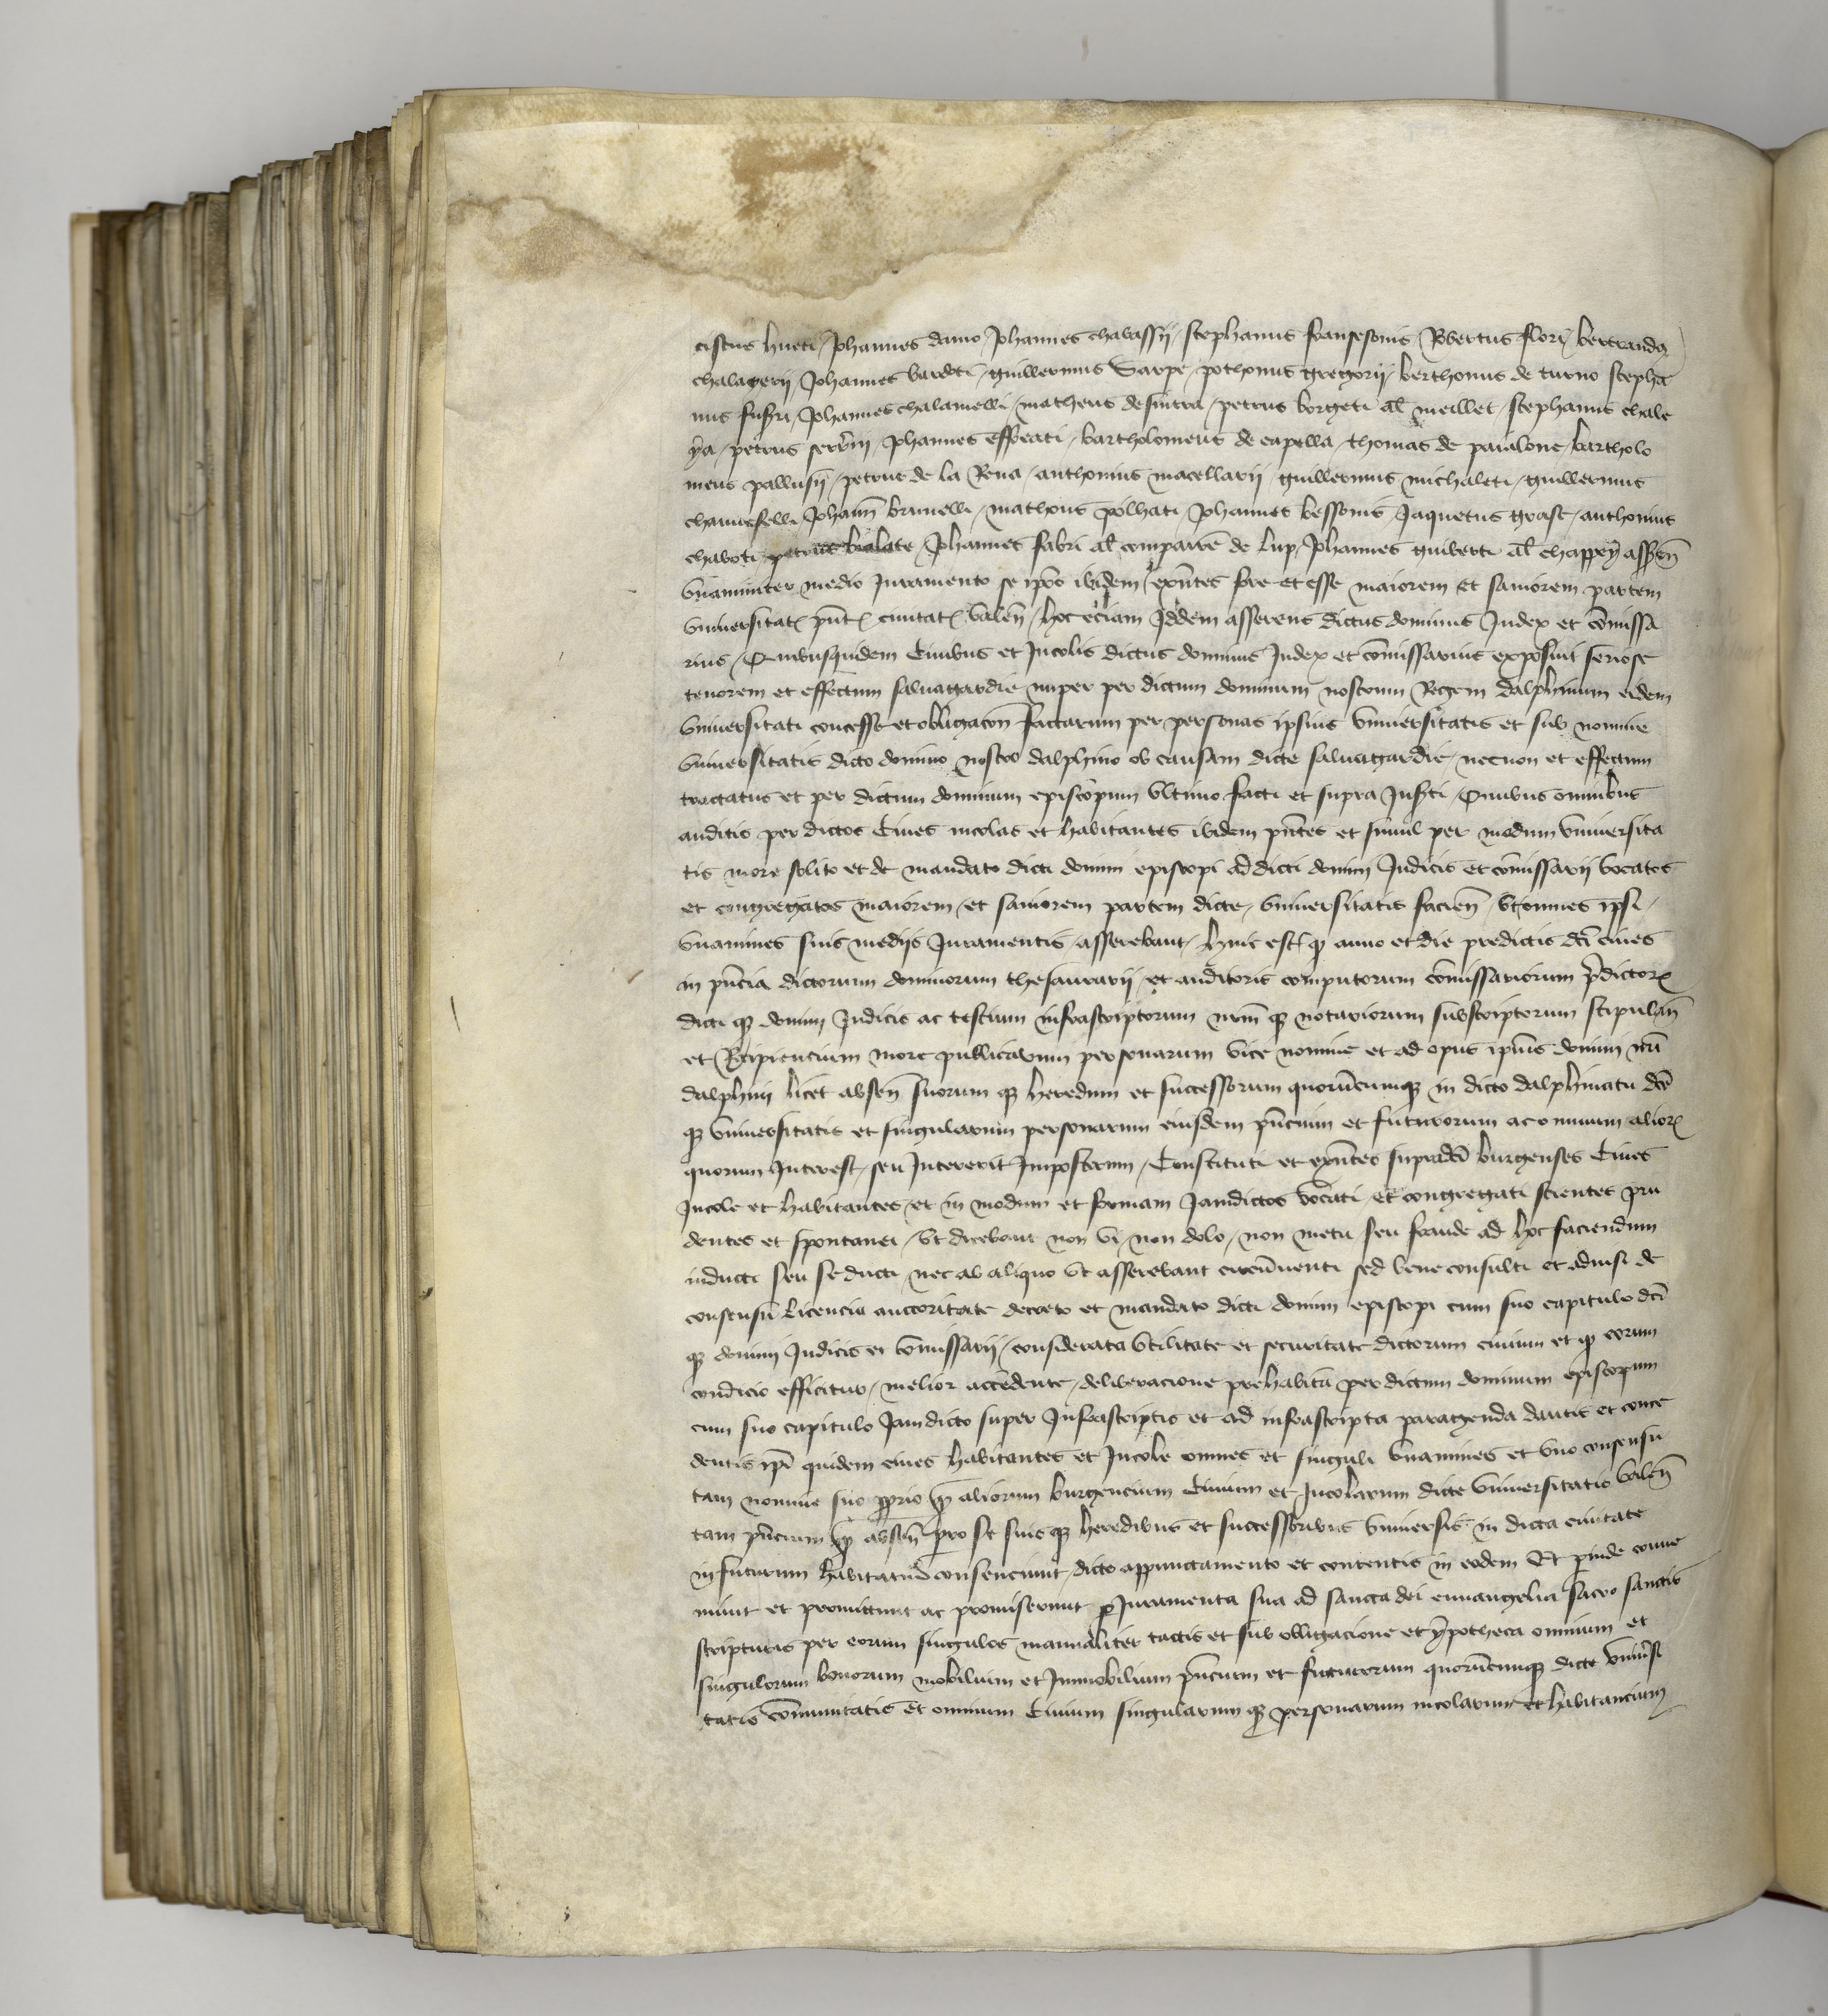 ciscus hueti / Johannes damo Johannes chavassii / stephanus fransesonis Robertus flori / bertrandꝰ
chalaterii Johannes bardoti / guillermus Sarpe / pothonus gregorii / berthonus de turno stepha
nus fusyri / Johannes chalamelli / matheus desintra / petrus borgeti al̄ meillet / stephanus chale
petrus Johannes effreati / bartholomeus de capella / thomas de paialone / bartholo
meus pallusii / petrus de la Rena / anthonius macellarii / guillermus michaleti / guillermus
Johan̄ brunelli / matheus polhati / Johannes bessonis Jaquetus grast / anthonius
chaboti / Johannes fabri al̄ comparre de lup / Johannes guiberti al̄
vnanimiter medio Juramento se ip̄os ibidem exn̄tes fore et esse maiorem et saniorem partem
vniuersitatꝭ pn̄tꝭ ciuitatꝭ valen̄ / hoc eciam Ibidem asserens dictus dominus Judex et com̄issa
rius / Quibusquidem Ciuibus et Incolis dictus dominus Judex et com̄issarius exposuit seriose
tenorem et effectum saluagardie nuper per dictum dominum nostrum Regem dalphinum eidem
vniuersitati concesse et obligacōn factarum per personas ipsius vniuersitatis et sub nomine
vniuersitatis dicto domino nostro dalphino ob causam dicte saluagardie / necnon et effectum
tractatus et per dictum dominum episcopum vltimo facti et supra Inserti / Quibus omnibus
auditis per dictos Ciues incolas et habitantes ibidem pn̄tes et simul per modum vniuersita
tis more solito et de mandato dicti domini episcopi ac dicti domini Judicis et com̄issarii vocatos
et congregatos maiorem / et saniorem partem dicte / vniuersitatis facien̄ / vt omnes ipsi /
vnanimes suis mediis Juramentis / asserebant / hinc est / ꝙ anno et die predictis dc̄i ciues
in pn̄cia dictorum dominorum thesaurarii / et auditoris computorum com̄issariorum p̄dictorꝭ
dicti qꝫ domini Judicis ac testium infrascriptorum nr̄m qꝫ notariorum subscriptorum stipulan̄
et Recipiencium more publicarum personarum vice nomine et ad opus ip̄ius domini nr̄i
dalphini licet absen̄ suorum qꝫ heredum et successorum quorūcumqꝫ in dicto dalphinatu dc̄e
qꝫ vniuersitatis et singularum personarum eiusdem pn̄cium et futurorum ac omnium aliorꝭ
quorum Interest / seu Intererit Imposterum / Constituti et exn̄tes supradc̄i burgenses Ciues
Incole et habitantes / et in modum et formam Jamdictos vocati / et congregati scientes pru
dentes et spontanei / vt dicebant non vi / non dolo / non metu / seu fraude ad hoc faciendum
inducti seu seducti / nec ab aliquo vt asserebant circūuenti sed bene consulti et aduisi de
consensu licencia auctoritate decreto et mandato dicti domini episcopi cum suo capitulo dc̄i
qꝫ domini Judicis et com̄issarii / considerata vtilitate et securitate dictorum ciuium et ꝙ eorum
condicio efficitur / melior accedente / deliberacione prehabita per dictum dominum episcopum
cum suo capitulo Jamdicto super Infrascriptis et ad infrascripta peragenda dantis et conce
dentis ip̄i quidem ciues habitantes et Incole omnes et singuli vnanimes et vno consensu
tam nomine suo ꝓprio ꝙ aliorum burgencium Ciuium et Incolarum dicte vniuersitatis valen̄
tam pn̄cium ꝙ absen̄ pro se suis qꝫ heredibus et successoribus vniuersis in dicta ciuitate
in futurum habitatur̄ consenciunt / dicto appunctamento et contentis in eodem Et ꝓinde conue
niunt et promittunt ac promiserunt ꝑ Juramenta sua ad sancta dei euuangelia sacro sanctis
scripturis per eorum singulos manualiter tactis et sub obligacione et ypotheca omnium et
singulorum bonorum mobilium et Immobilium pn̄cium et futurorum quorūcumqꝫ dicte vniu̓si
tatis com̄unitatis et omnium Ciuium singularum qꝫ personarum incolarum et habitancium